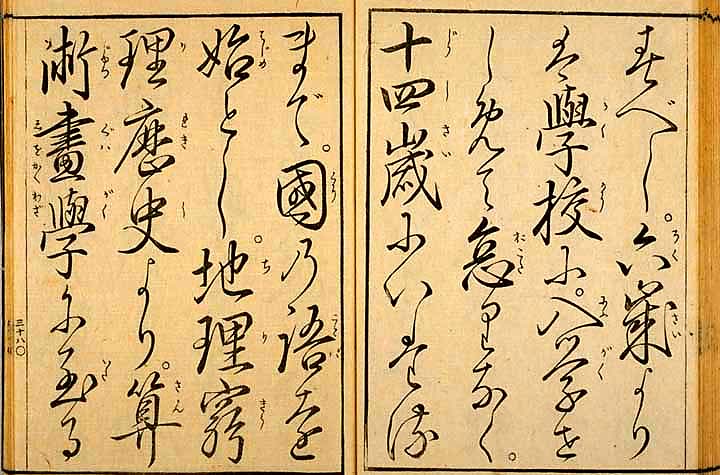 すべし。六歳より
は學校に。入学せ
しめて怠りなく。
十四歳にいたる
まで。國の語を
始とし。地理窮
理歴史より。算
術畫學に至る
三十八